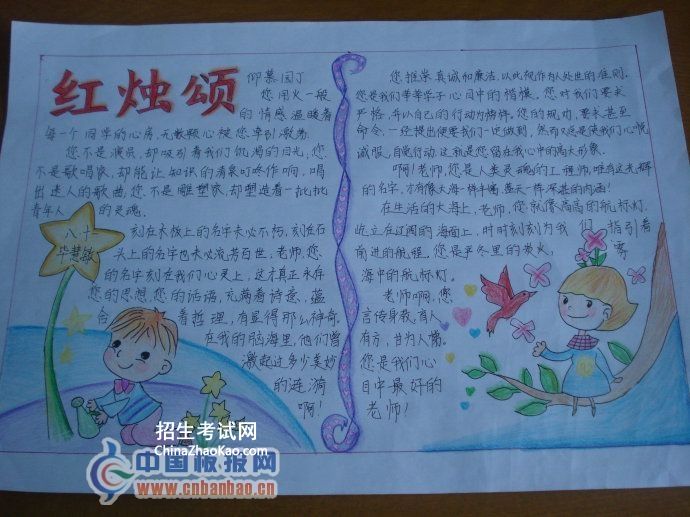 红烛颂
仰慕园丁
您用火一般
的情感温暖着
每一个同学的心房,无数颗心被您牵引激荡
您不是演员,却吸引着我们饥渴的目光,您
不是歌唱家,却能让知识的清泉叮咚作响,唱
出迷人的歌曲,您不是雕塑家,却塑造着一批批
青年人的灵魂。
八十
毕慧敏
刻在木板上的名字未必不朽,刻在石
头上的名字也未必流芳百世。老师,您
的名字刻在我们心灵上,这才真正永存
您的思想,您的话语,充满着诗意,蕴
含着哲理,有显得那么神奇。
在我的脑海里,他们曾
激起过多少美妙
的涟漪
啊!
您推崇真诚和廉洁,以此视作为人处世的准则。
您是我们莘莘学子心目中的楷模。您对我们要求
严格,并以自己的行动为榜样。您的规劝,要求甚至
命令,一经提出便要我们一定做到,然而又总是使我们心悦
诚服,自觉行动,这就是您留在我心中的高大形象。
啊!老师,您是人类灵魂的工程师,唯有这光辉
的名字,才有像大海一样丰富,蓝天一样深湛的内涵!
在生活的大海上,老师,您就像高高的航标灯,
屹立在辽阔的海面上,时时刻刻为我们指引着
前进的航程。您是严冬里的炭火,雾
海中的航标灯。
老师啊,您
言传身教,育人
有方,甘为人梯。
您是我们心
目中最好的
老师!
招生考试网
ChinaZhaoKao.com
中国板报网
www.cnbanbao.cn